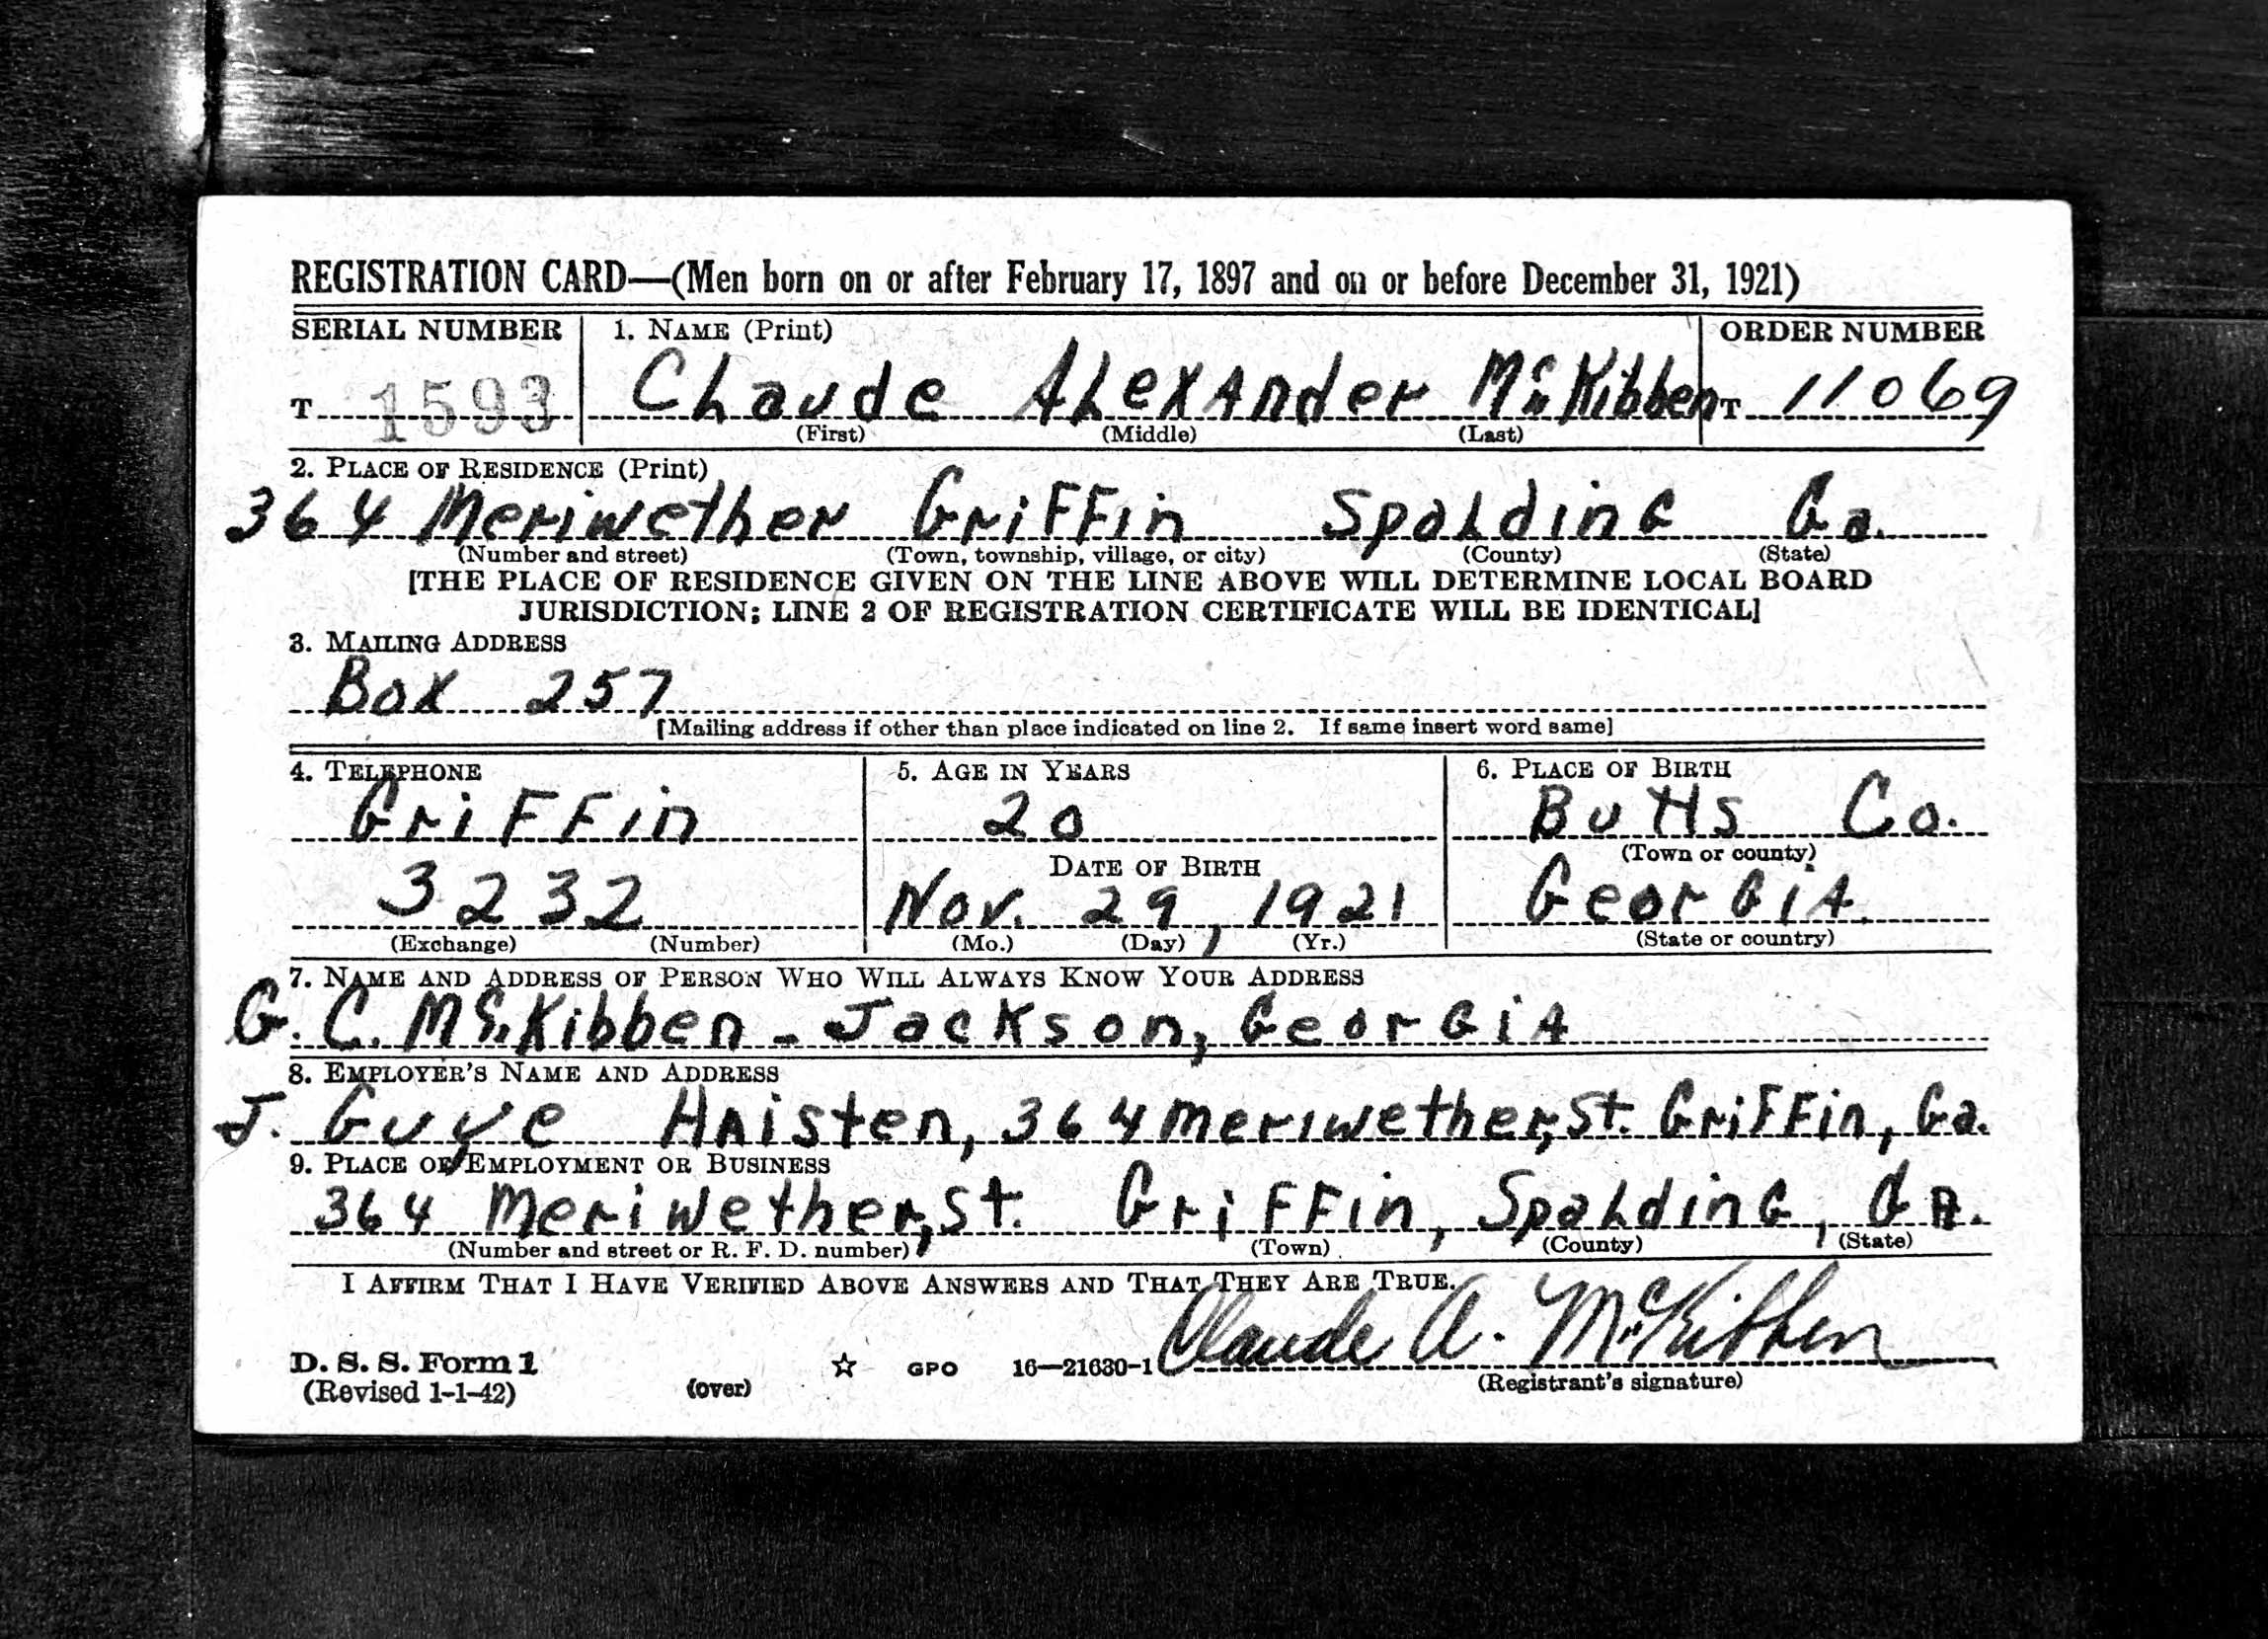 REGISTRATION CARD—(Men born on or after February 17, 1897 and on or before December 31, 1921)
SERIAL NUMBER 1. NAME (Print) ORDER NUMBER
T 1593 Claude Alexander McKibben T 11069
(First) (Middle) (Last)
2. PLACE OF RESIDENCE (Print)
364 Meriwether Griffin Spalding Ga.
(Number and street) (Town, township, village, or city) (County) (State)
[THE PLACE OF RESIDENCE GIVEN ON THE LINE ABOVE WILL DETERMINE LOCAL BOARD
JURISDICTION; LINE 2 OF REGISTRATION CERTIFICATE WILL BE IDENTICAL]
3. MAILING ADDRESS
Box 257
[Mailing address if other than place indicated on line 2. If same insert word same]
4. TELEPHONE 5. AGE IN YEARS 6. PLACE OF BIRTH
Griffin 20 Butts Co.
DATE OF BIRTH (Town or county)
3232 Nov. 29, 1921 Georgia
(Exchange) (Number) (Mo.) (Day) (Yr.) (State or country)
7. NAME AND ADDRESS OF PERSON WHO WILL ALWAYS KNOW YOUR ADDRESS
G. C. McKibben - Jackson, Georgia
8. EMPLOYER'S NAME AND ADDRESS
J. Guye Haisten, 364 Meriwether, St. Griffin, Ga.
9. PLACE OF EMPLOYMENT OR BUSINESS
364 Meriwether, St. Griffin, Spalding, GA.
(Number and street or R. F. D. number) (Town) (County) (State)
I AFFIRM THAT I HAVE VERIFIED ABOVE ANSWERS AND THAT THEY ARE TRUE.
Claude A. McKibben
D. S. S. Form 1 ☆ GPO 16—21630-1
(Revised 1-1-42) (over) (Registrant's signature)